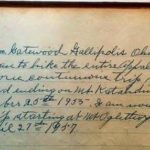 Gatewood Gallipolis Ohio
to hike the entire Appala
continuous trip
ended on Mt Katahdin
ber 25th 1955. I am now
starting at Mt Oglethorpe
27th 1957.